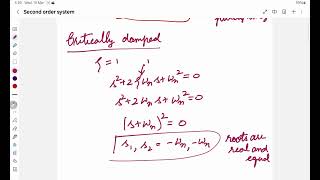 Second order system
Critically damped
ξ = 1
1
s² + 2ξωₙs + ωₙ² = 0
s² + 2ωₙs + ωₙ² = 0
(s + ωₙ)² = 0
s₁, s₂ = -ωₙ, -ωₙ
roots are
real and
equal